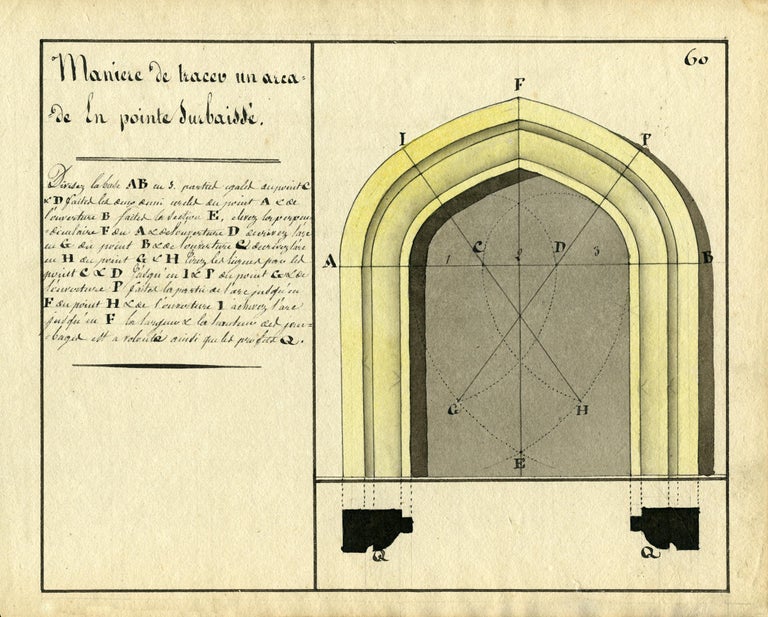 Maniere de tracer un arca-
de En pointe Surbaissé.
Divisez la base AB en 3. parties egales au point C
& D faites les deux demi cercles du point A & de
l'ouverture B faites la section E, elevez la perpen-
diculaire F du A & de l'ouverture D decrivez l'arc
en G du point B & de l'ouverture C decrivez l'arc
en H du point G & H tirez les lignes par les
point C & D jusqu'en I & P du point G & de
l'ouverture P faites la partie de l'arc jusqu'en
F du point H & de l'ouverture I achevez l'arc
jusqu'en F la largeur & la hauteur des jam-
bages est a volonté ainsi que les profils Q.
60
F
I
P
A
1
C
2
D
3
B
G
H
E
Q
Q